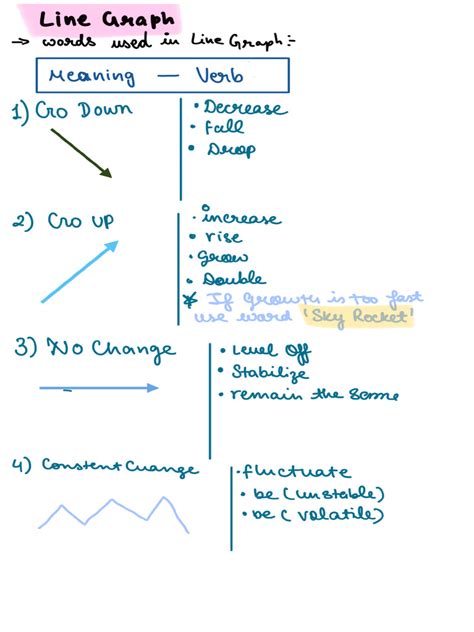 Line Graph
→ words used in Line Graph:-
Meaning — Verb
1) Go Down
• Decrease
• Fall
• Drop
2) Go up
• increase
• rise
• Grow
• Double
* If growth is too fast
use word 'Sky Rocket'
3) No Change
• Level Off
• Stabilize
• remain the same
4) Constent Change
• fluctuate
• be (unstable)
• be ( volatile)